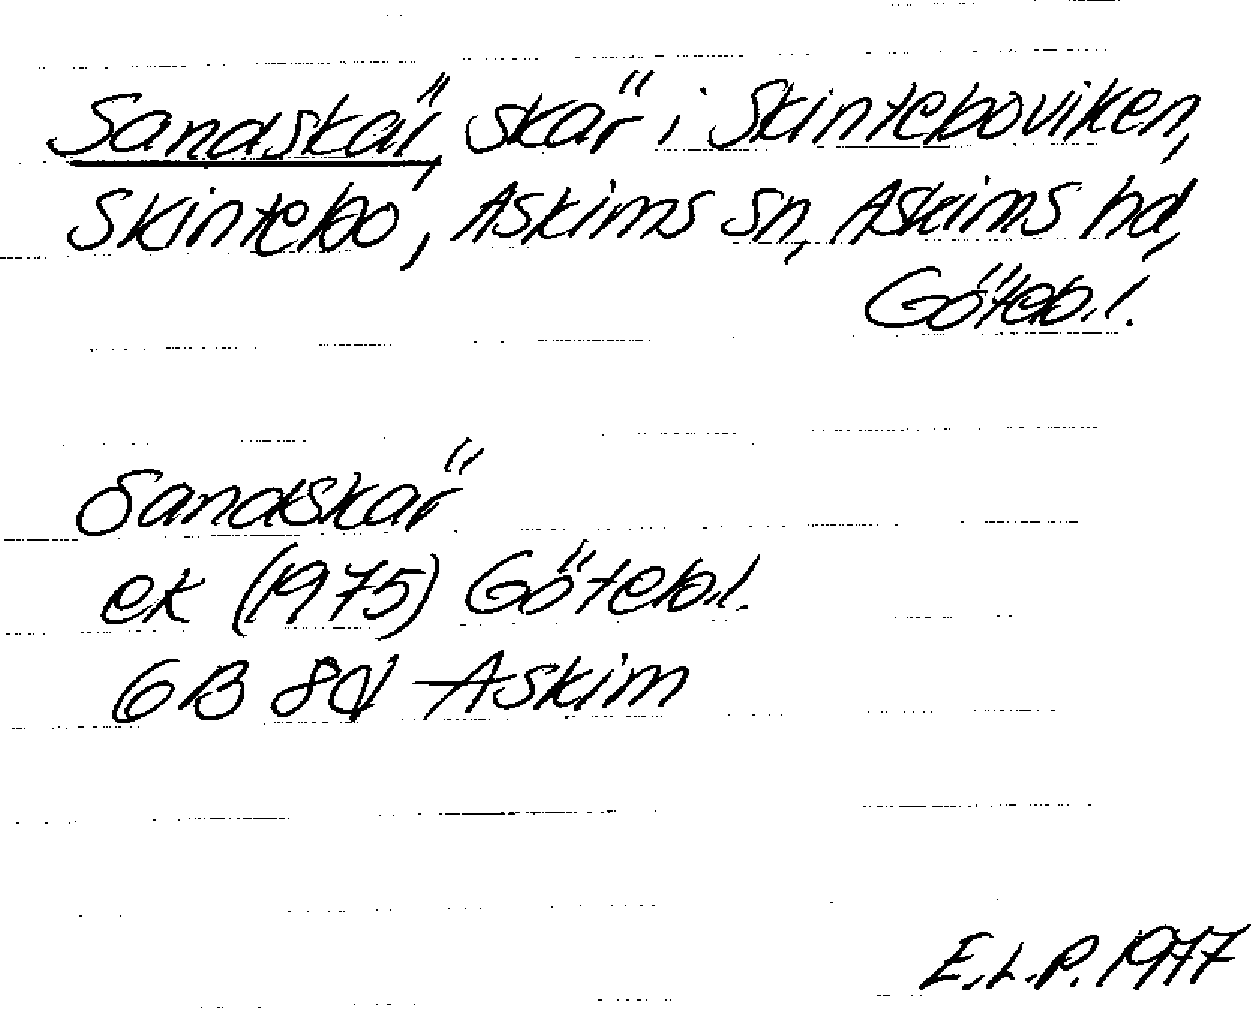 Sandskär, skär i Skinteboviken,
Skintebo, Askims sn, Askims hd,
Göteb.l.
Sandskär
ek (1975) Göteb.l.
6B 8d Askim
E.L.P. 1977